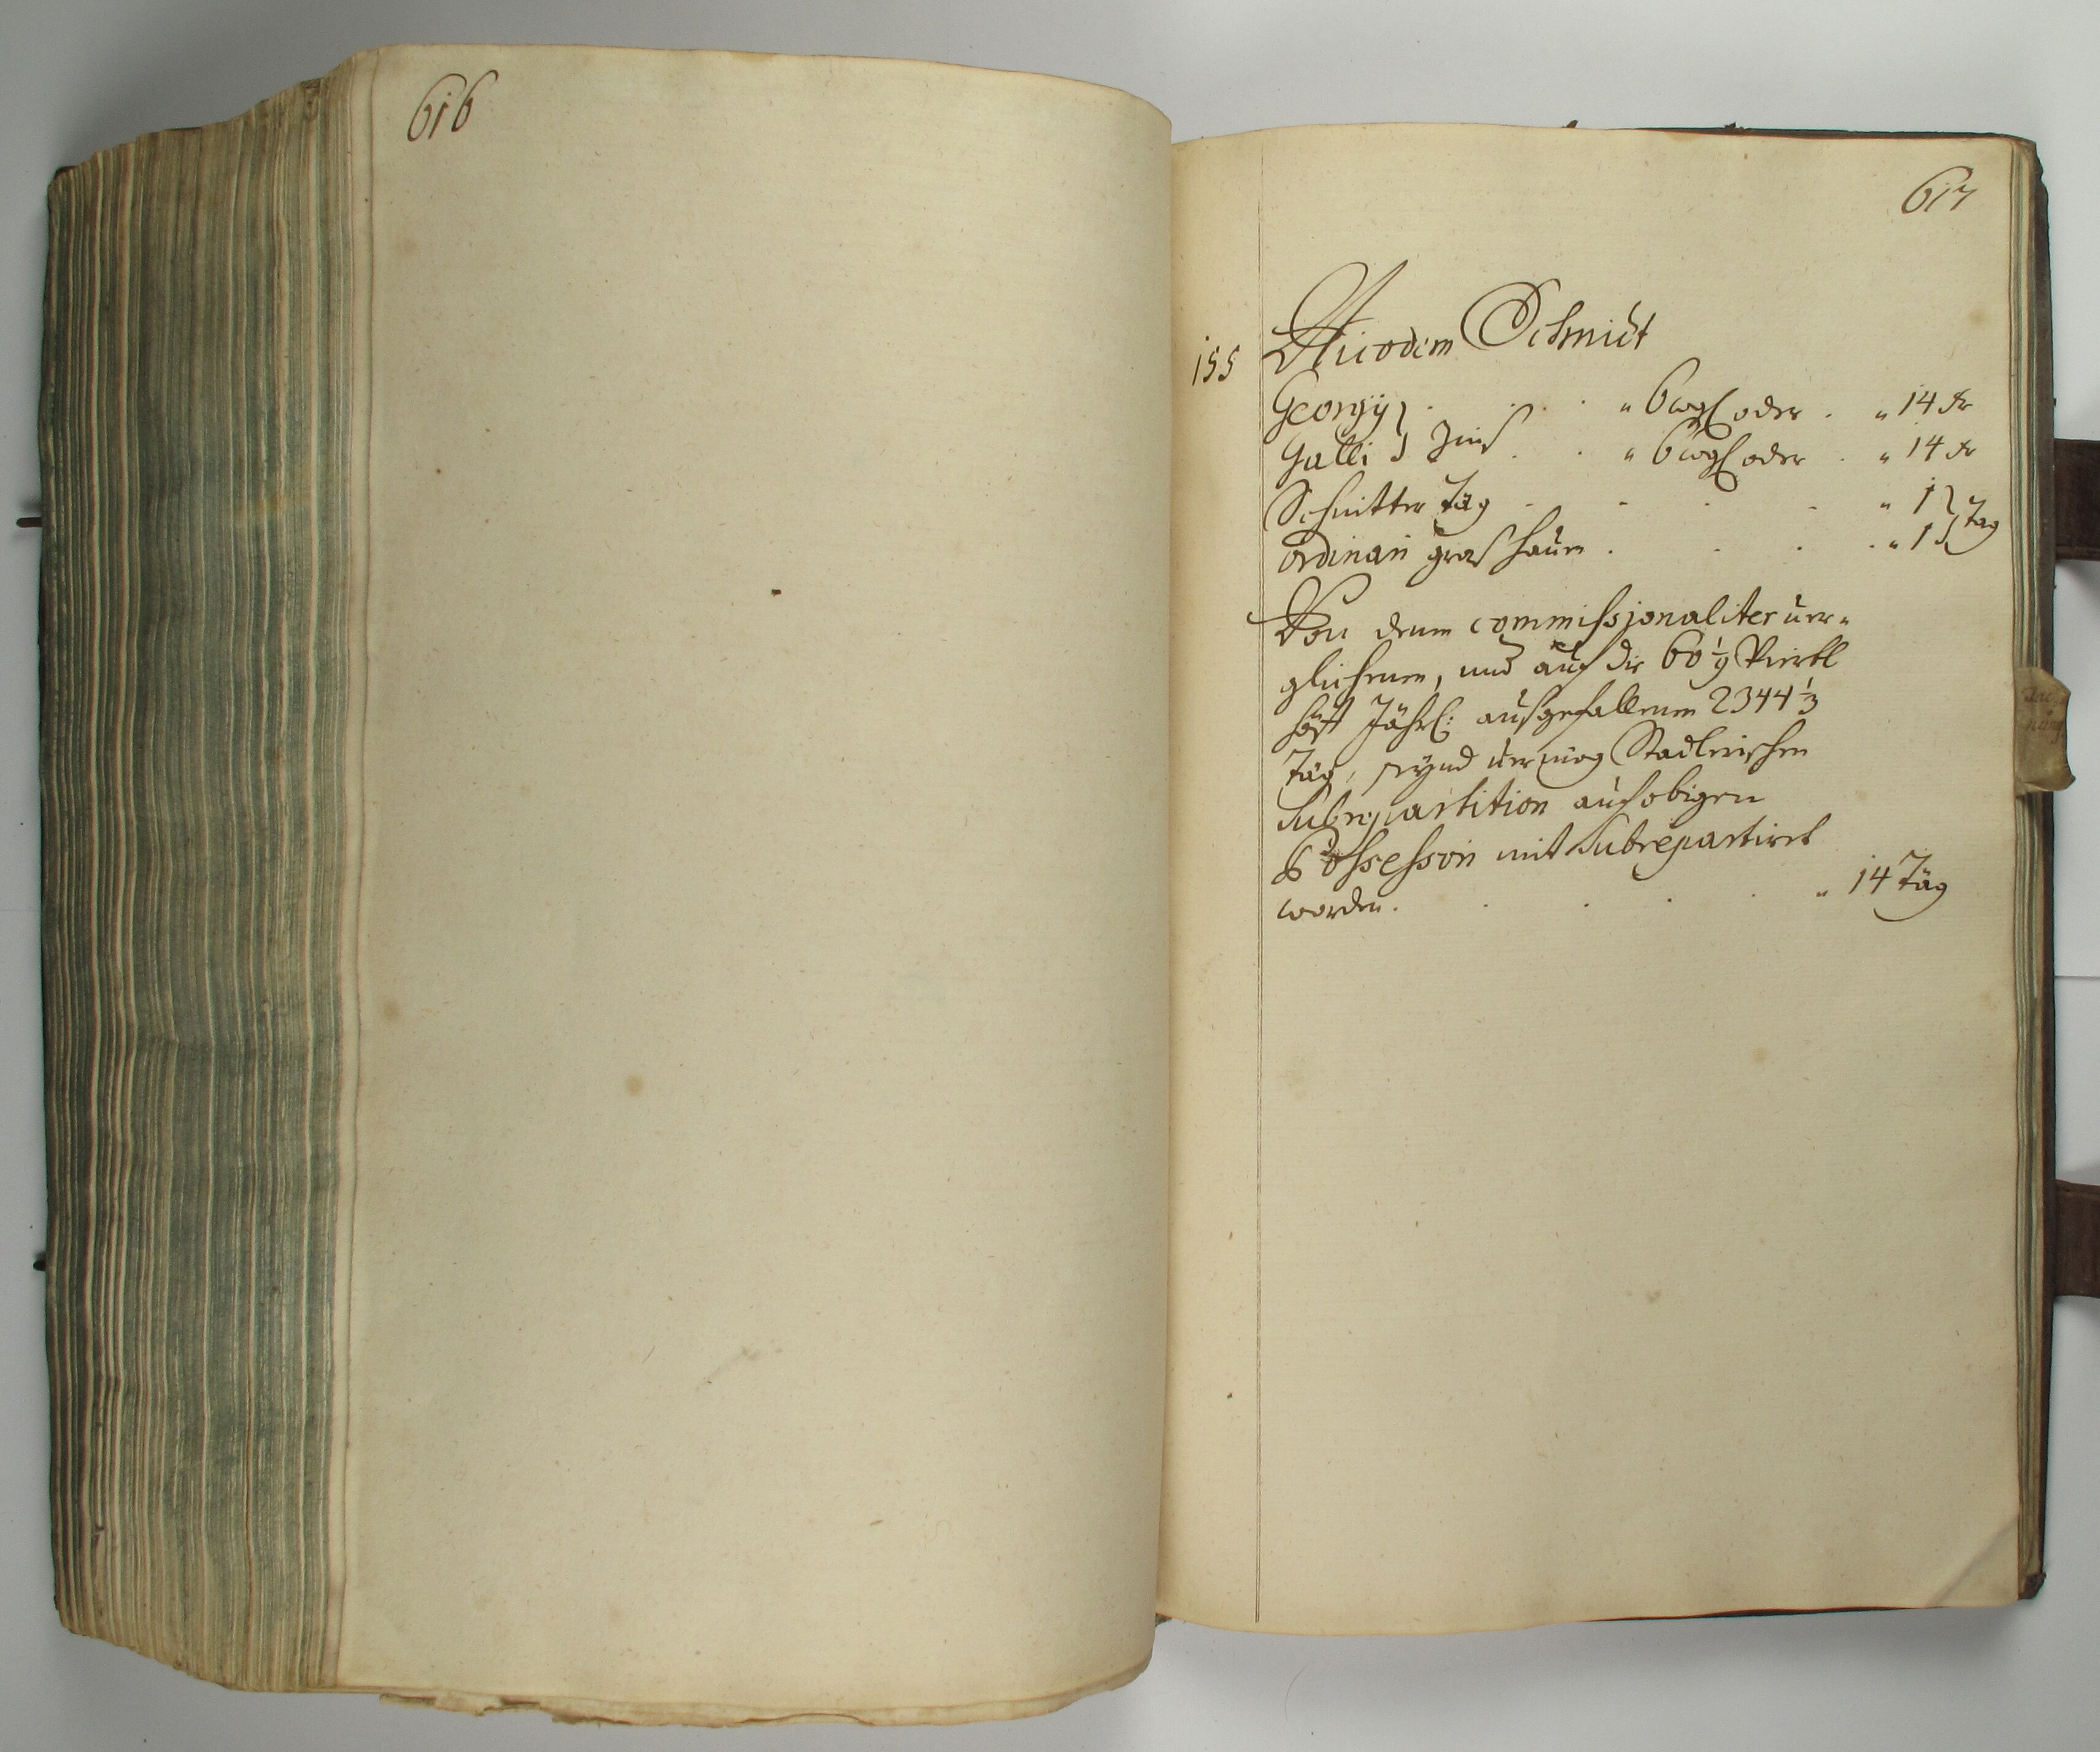 616
617
155 Nicodem Schmidt
Georgÿ } . . . " 6 wgl oder . " 14 kr
Galli } Zinß . . " 6 wgl oder . " 14 kr
Schnitter Täg . . . . " 1 } Tag
ordinari graß hauen . . . . " 1 }
Von denen commissionaliter ver-
glichenen, und auf die 60 1/9 Viertl
höff Jährl: ausgefallenen 2344 1/3
Täg, seynd vermög Stadlerischen
Subrepartition auf obigen
Possessori mit Subrepartiret
worden. . . . . " 14 Täg